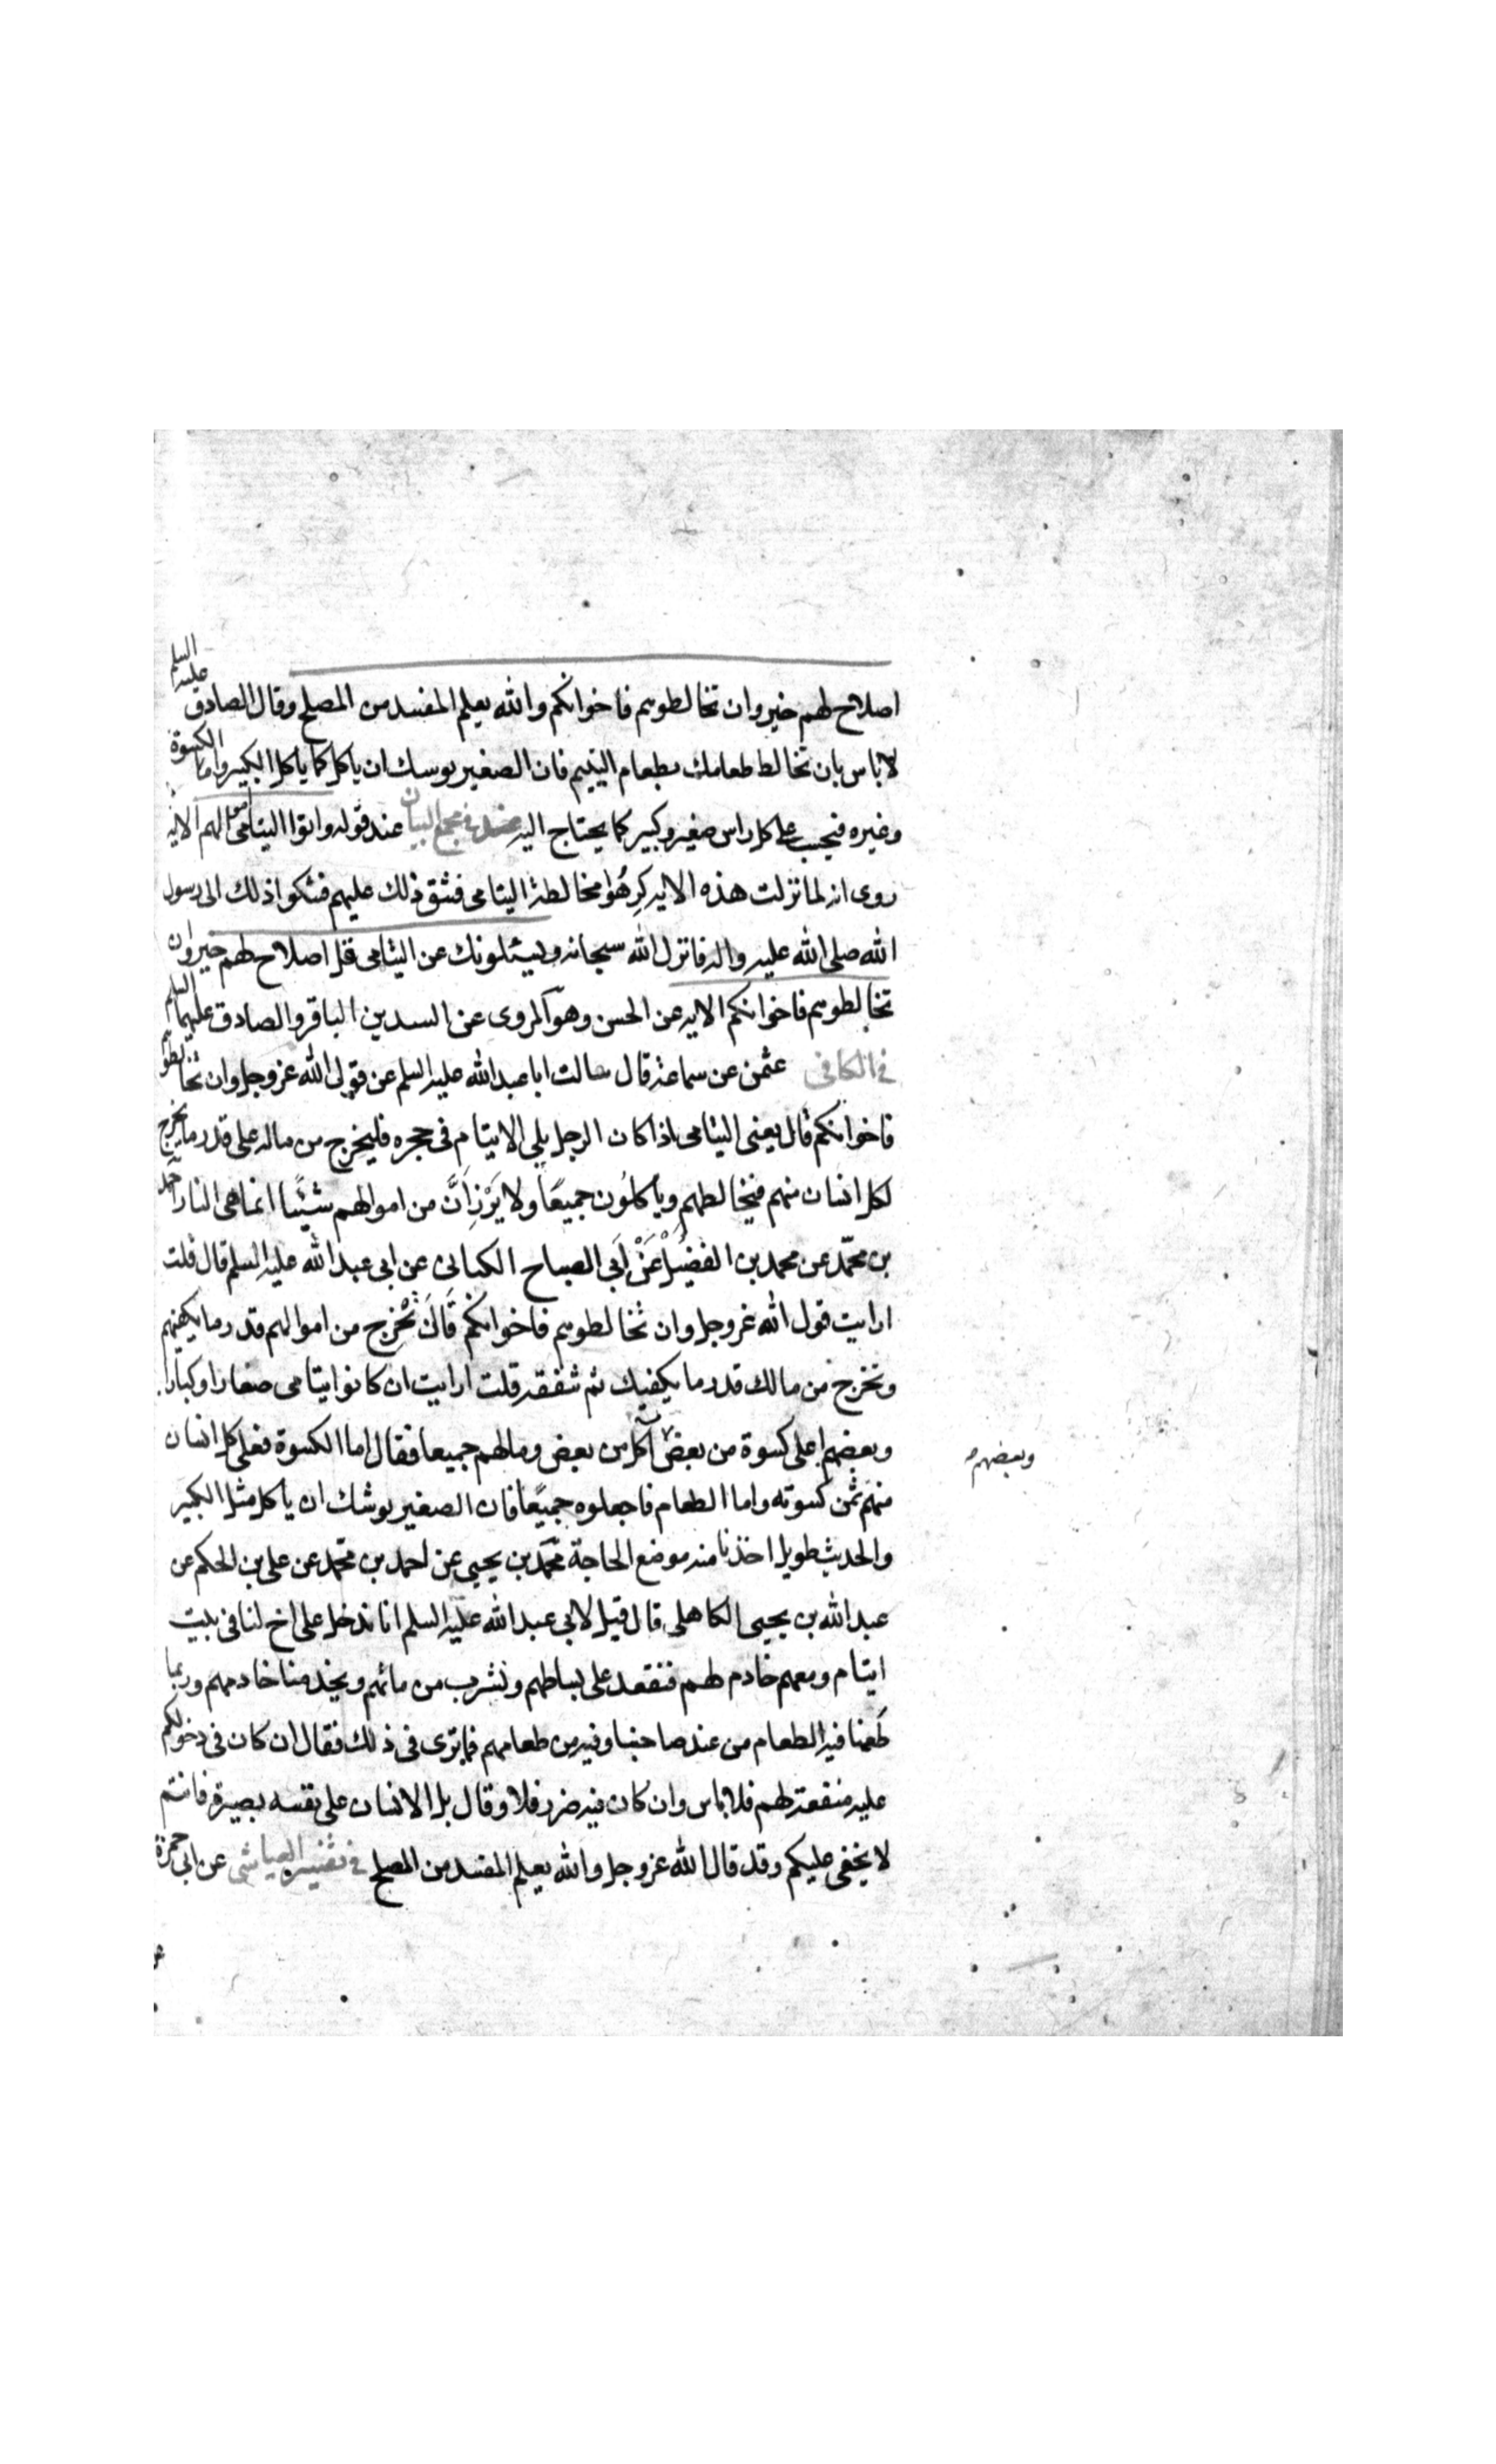 اصلاح لهم خير وان تخالطوهم فاخوانكم والله يعلم المفسد من المصلح وقال الصادق عليه السلم
لا باس بان تخالط طعامك بطعام اليتيم فان الصغير يوسك ان ياكل كما ياكل الكبير واما الكسوة
وغيره فيجب على كل راس صغير وكبير كما يحتاج اليه في مجمع البيان عند قوله واتوا اليتامى اموالهم الايه
روى انه لما نزلت هذه الايه كرهوا مخالطة اليتامى فشق ذلك عليهم فشكوا ذلك الى رسول
الله صلى الله عليه واله فانزل الله سبحانه ويسئلونك عن اليتامى قل اصلاح لهم خير وان
تخالطوهم فاخوانكم الايه عن الحسن وهو المروى عن السيدين الباقر والصادق عليهما السلم
في الكافي عثمن عن سماعة قال سالت ابا عبد الله عليه السلم عن قول الله عز وجل وان تخالطوهم
فاخوانكم قال يعنى اليتامى اذا كان الرجل يلى الايتام فى حجره فليخرج من ماله على قدر ما يخرج
لكل انسان منهم فيخالطهم وياكلون جميعا ولا يَرْزَأَنَّ من اموالهم شيئًا انما هى النار احمد
بن محمّد عن محمد بن الفضيل عَنْ اَبي الصباح الكنانى عن ابى عبد الله عليه السلم قال قلت
ارايت قول الله عز وجل وان تخالطوهم فاخوانكم قَالَ تُخْرِج من اموالهم قدر ما يكفيهم
وتخرج من مالك قدر ما يكفيك ثم تنفقه قلت ارايت ان كانوا يتامى صغارا وكبارا
وبعضهم اعلى كسوة من بعض آكل من بعض ومالهم جميعا فقال اما الكسوة فعلى كل انسان
وبعضهم
منهم ثمن كسوته واما الطعام فاجعلوه جميعًا فان الصغير يوشك ان ياكل مثل الكبير
والحديث طويل اخذنا منه موضع الحاجة محمّد بن يحيى عن احمد بن محمّد عن على بن الحكم عن
عبد الله بن يحيى الكاهلى قال قيل لابى عبد الله عليه السلم انا ندخل على اخ لنا فى بيت
ايتام ومعهم خادم لهم فنقعد على بساطهم ونشرب من مائهم ويخدمنا خادمهم وربما
طعمنا فيه الطعام من عند صاحبنا وفيه من طعامهم فما ترى فى ذلك فقال ان كان فى دخولكم
عليه منفعة لهم فلا باس وان كان فيه ضرر فلا وقال بل الانسان على نفسه بصيرة فانتم
لا يخفى عليكم وقد قال الله عز وجل والله يعلم المفسد من المصلح في تفسير العياشى عن ابى حمزة